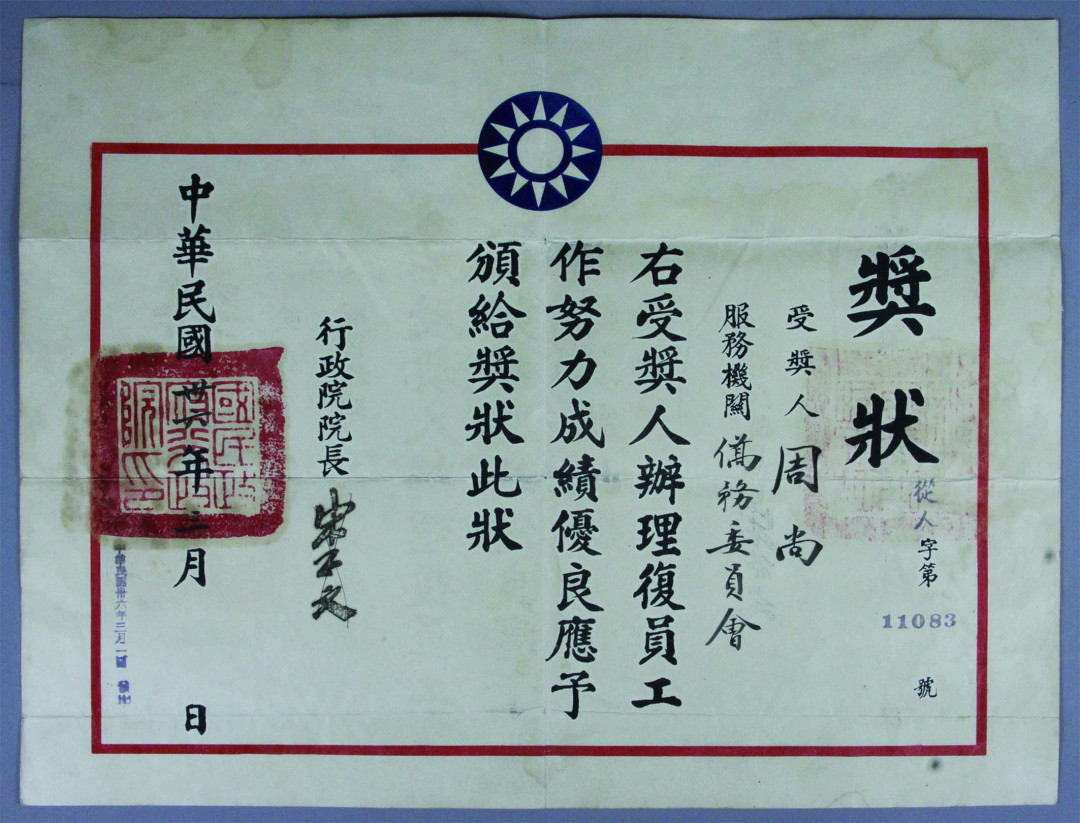 獎狀
從人字第11083號
受獎人 周尚
服務機關 僑務委員會
右受獎人辦理復員工
作努力成績優良應予
頒給獎狀此狀
行政院院長 宋子文
中華民國卅六年三月 日
中華民國卅六年三月一日